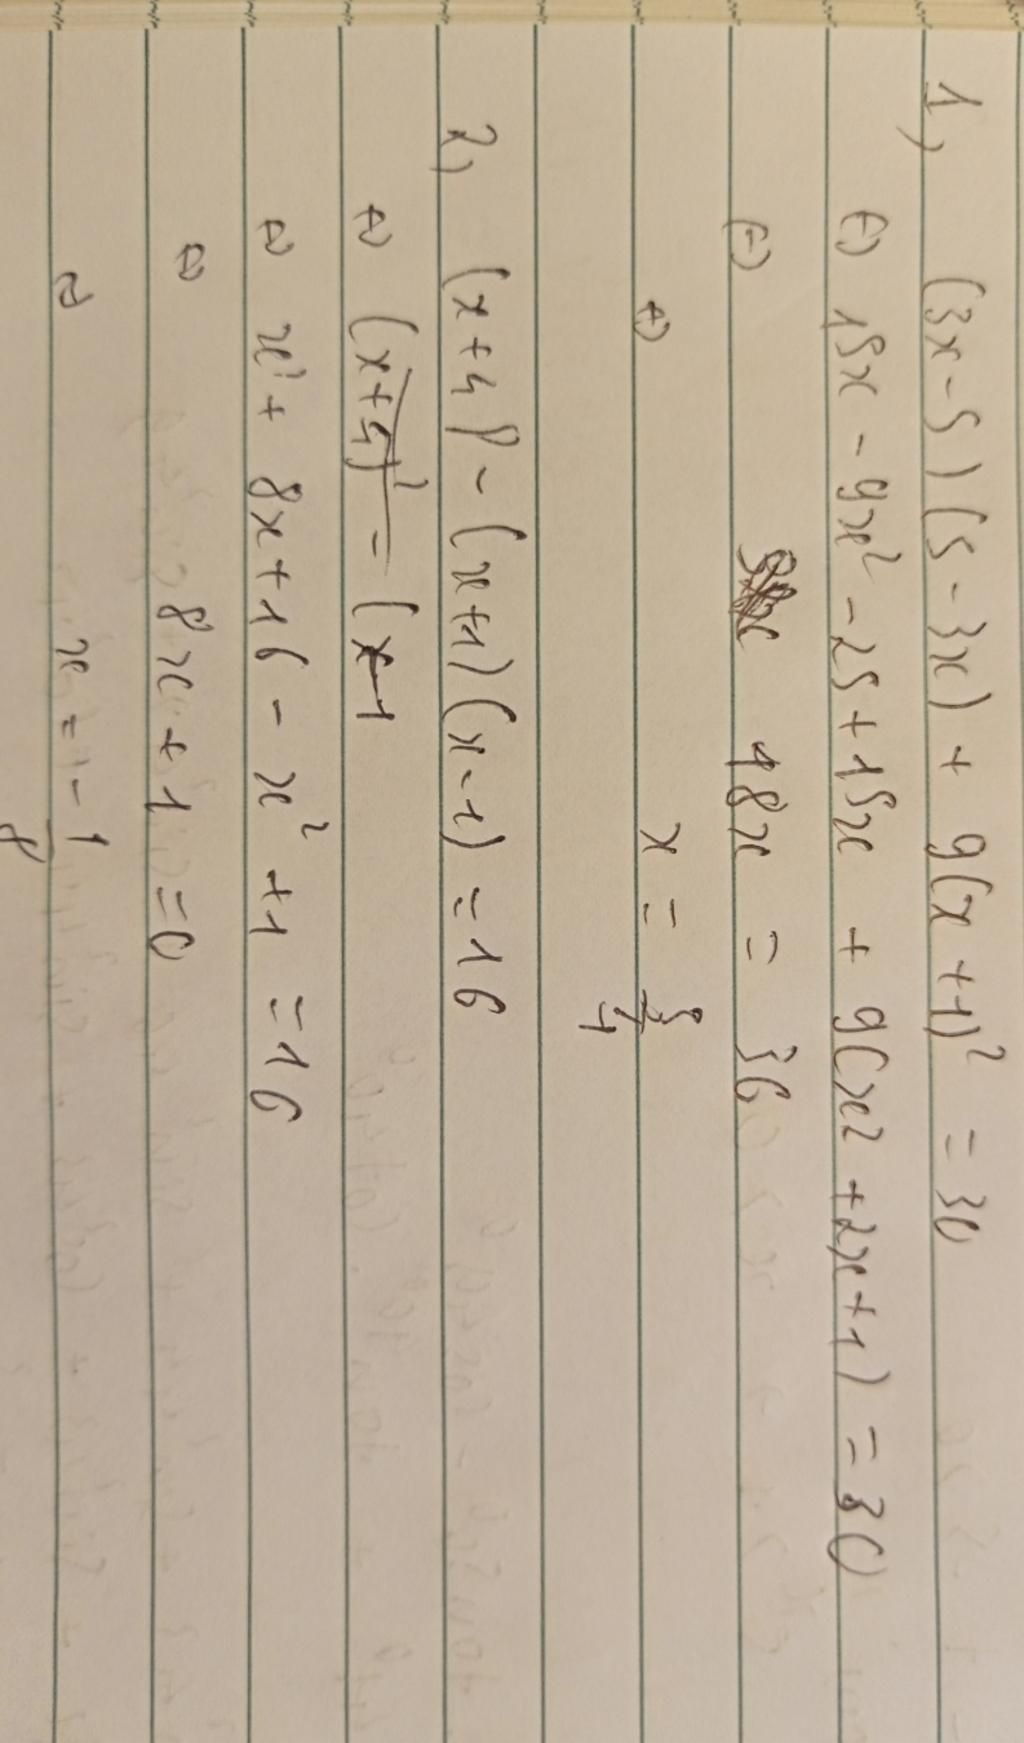 1, (3x-5)(5-3x) + 9(x+1)² = 30
⇔ 15x - 9x² - 25 + 15x + 9(x² + 2x + 1) = 30
⇔ 48x = 36
⇔ x = 3/4
2, (x+4)² - (x+1)(x-1) = 16
⇔ (x+4)² - (x-1
⇔ x² + 8x + 16 - x² + 1 = 16
⇔ 8x + 1 = 0
⇔ x = -1/8